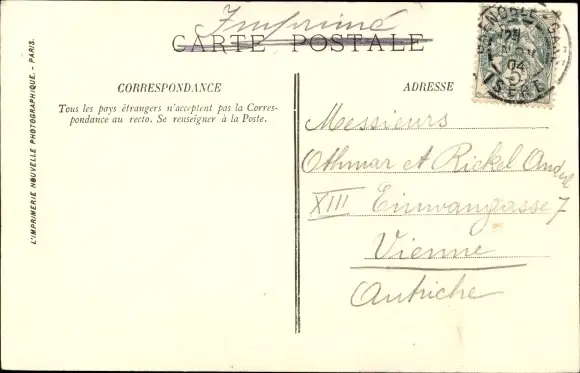 Imprimé
CARTE POSTALE
GRENOBLE
04
ISÈRE
CORRESPONDANCE
Tous les pays étrangers n'acceptent pas la Corres-
pondance au recto. Se renseigner à la Poste.
ADRESSE
Messieurs
Othmar et Rickel
XIII Einwangasse 7
Vienne
Autriche
L'IMPRIMERIE NOUVELLE PHOTOGRAPHIQUE. - PARIS.